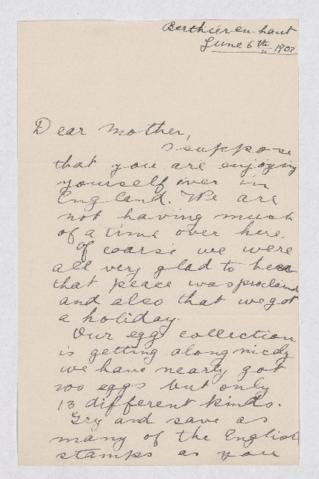 Berthier en haut
June 6th 1902
Dear Mother,
I suppose
that you are enjoying
yourself over in
England. We are
not having much
of a time over here.
Of coarse we were
all very glad to hear
that peace was proclaimed
and also that we got
a holiday.
Our egg collection
is getting along nicely
we have nearly got
200 eggs but only
13 different kinds.
Try and save as
many of the English
stamps as you